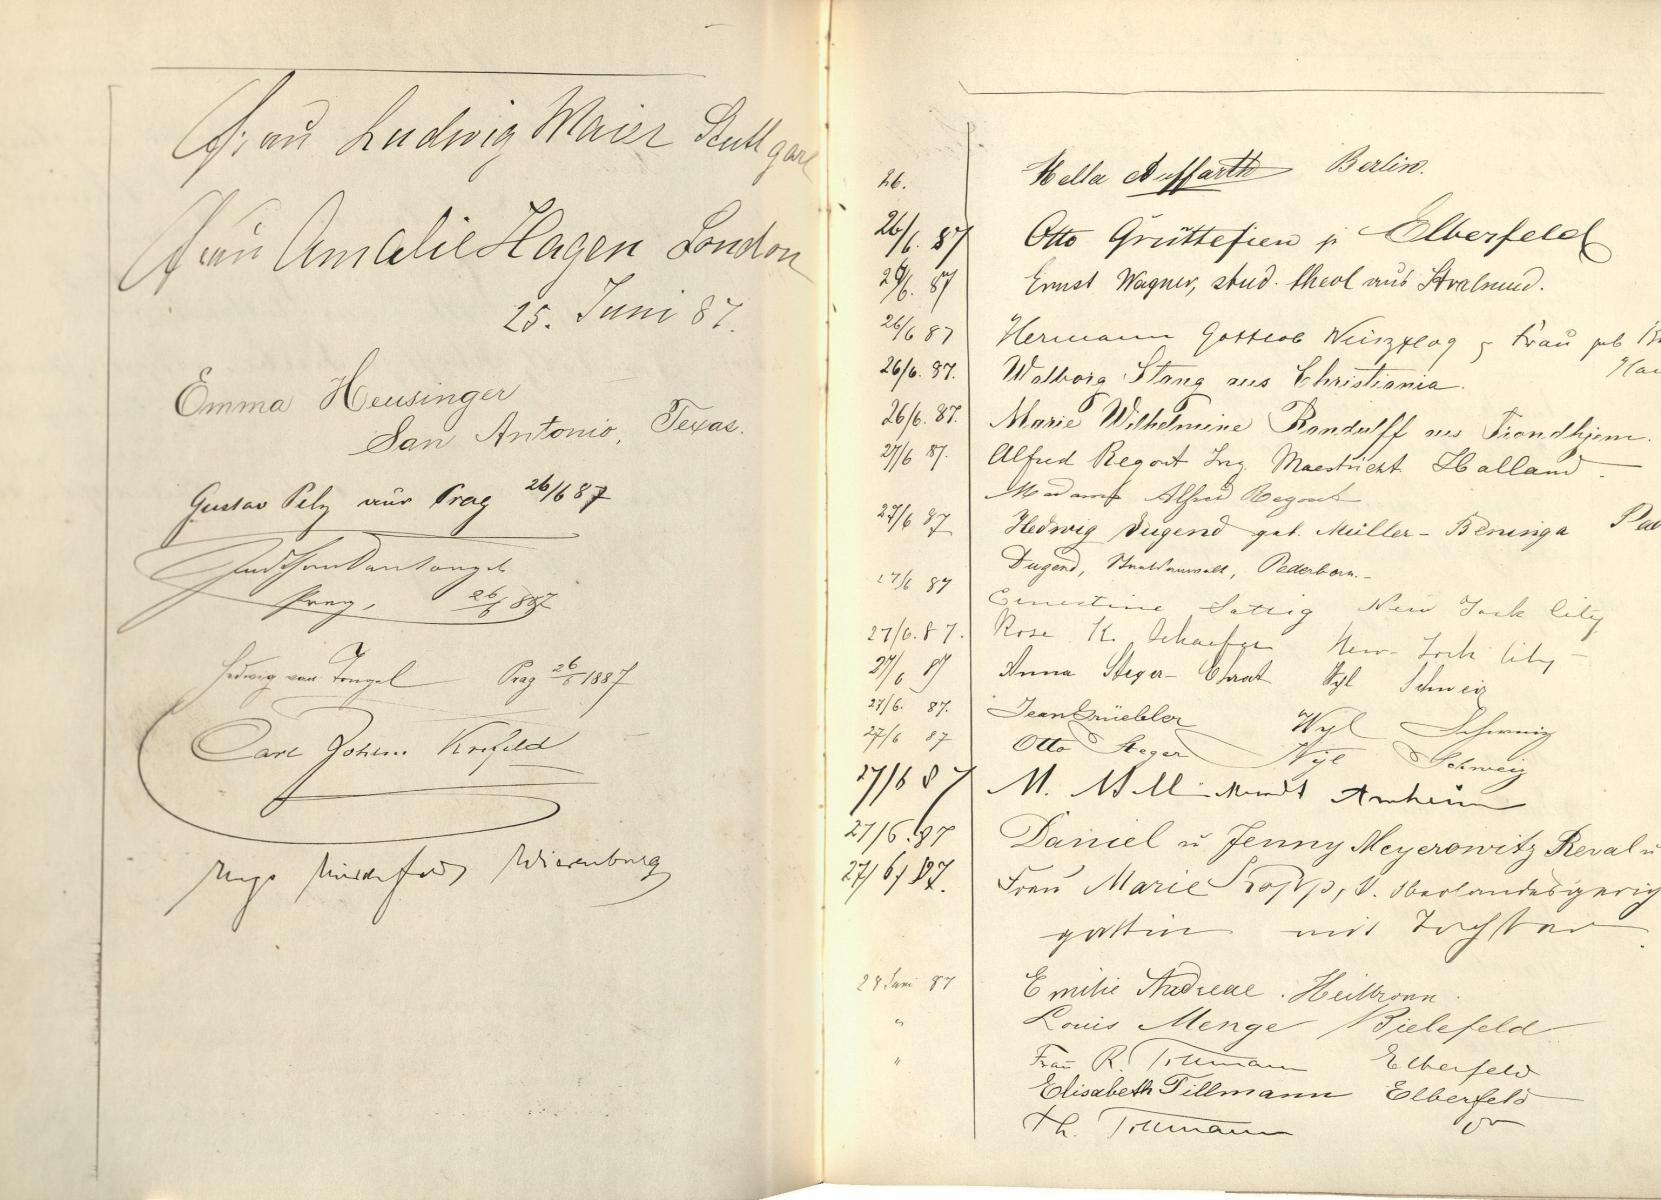 Frau Ludwig Maier Stuttgart
Frau Amalie Hagen London
25. Juni 87.
Emma Heusinger
San Antonio, Texas.
Gustav Pelz aus Prag 26/6 87
Prag, 26/6 887
Hedwig von Tongel Prag 26/6 1887
Carl Johem Krefeld
26. Hella Auffarth Berlin.
26/6. 87 Otto Grüttefien jr Elberfeld
26/6. 87 Ernst Wagner, stud. theol aus Stralsund.
26/6 87 Hermann Gottlob & Frau geb
26/6. 87. Walborg Stang aus Christiania.
26/6. 87. Marie Wilhelmine Randulff aus Trondhjem.
27/6 87. Alfred Regout Ing. Maestricht Holland
Madame Alfred Regout
27/6 87 Hedwig Dugend geb. Müller-Beninga
Dugend, Staatsanwalt, Paderborn.
27/6 87 Ernestine New York City
27/6. 87. Rose K. Schaefer New-York City
27/6 87 Anna Steger-Ehrat Wyl Schweiz
27/6. 87. Jean Grüebler Wyl Schweiz
27/6 87 Otto Steger Wyl Schweiz
27/6 87 M. Arnheim
27/6. 87 Daniel u Jenny Meyerowitz Reval u
27/6/ 87. Frau Marie Kopp, k. Oberlandesgerich
gattin mit Tochter
28 Juni 87 Emilie Andreae. Heilbronn.
" Louis Menge Bielefeld
" Frau R. Tillmann Elberfeld
Elisabeth Tillmann Elberfeld
Th. Tillmann do